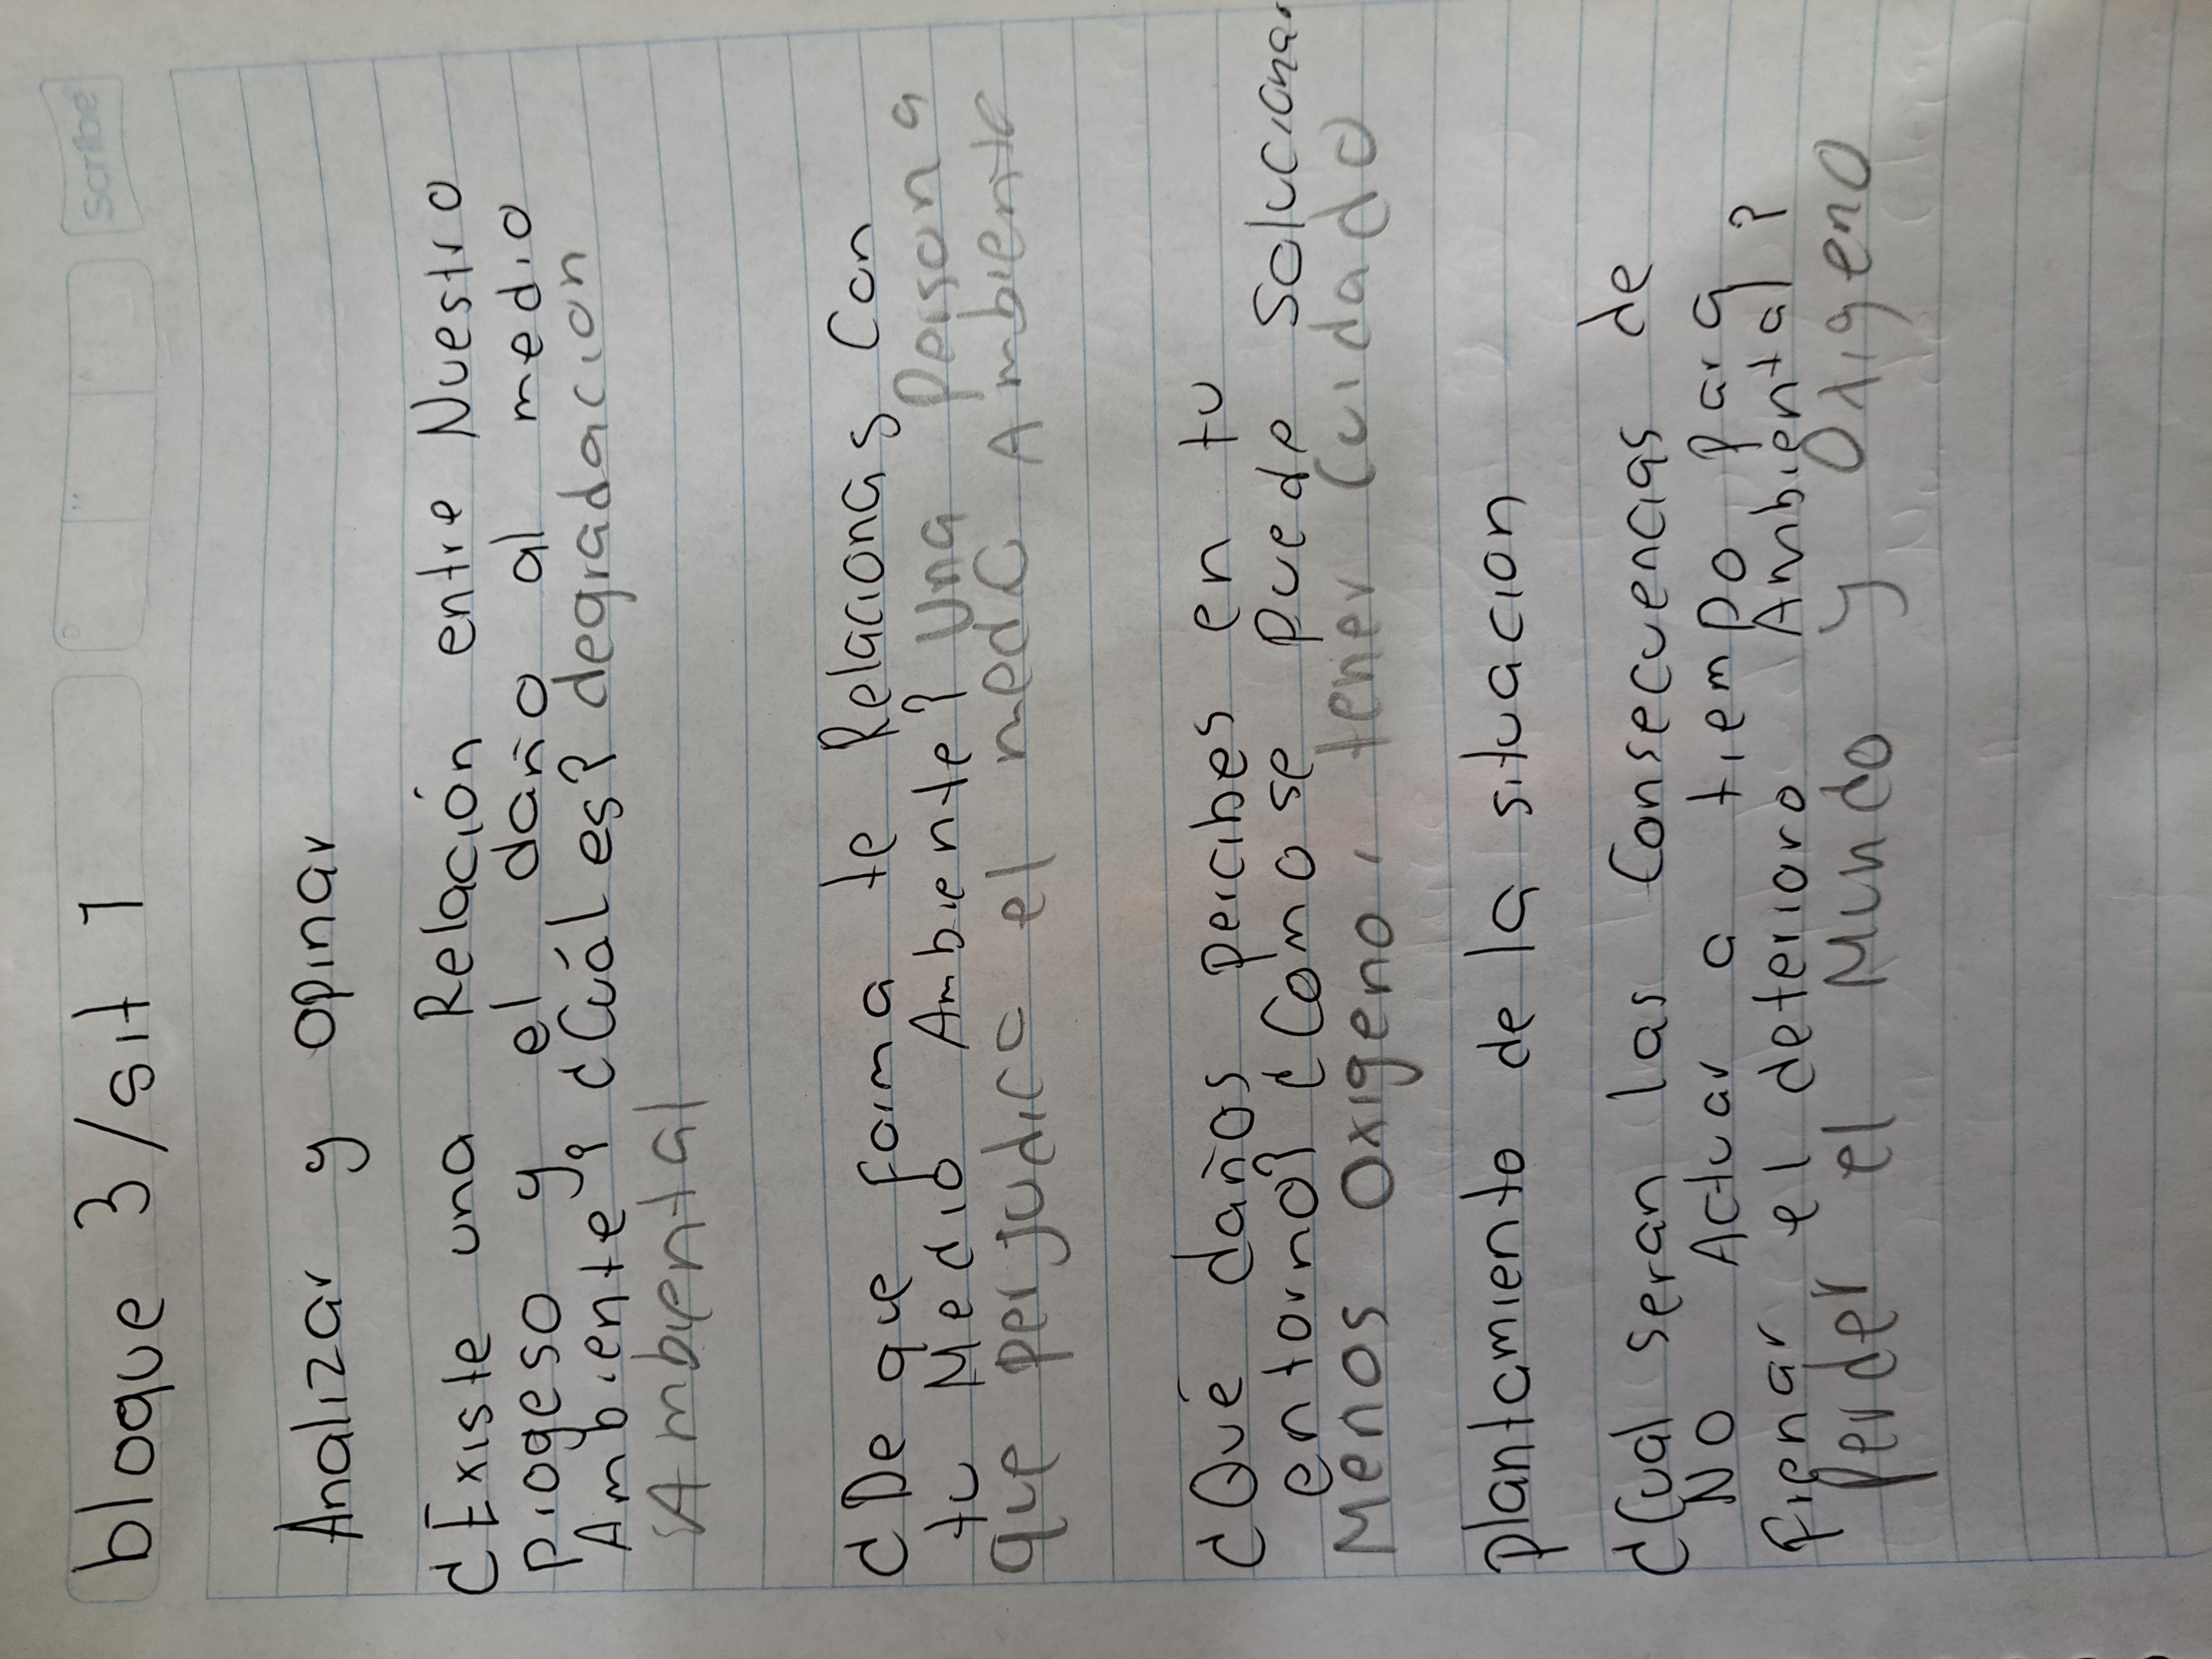 Scribe
bloque 3/sit 1
Analizar y opinar
¿Existe una Relación entre Nuestro
progeso y el daño al medio
Ambiente, ¿Cuál es? degradacion
Ambiental
¿De que forma te Relacionas Con
tu Medio Ambiente? Una persona
que perjudica el medC Ambiente
¿Qué daños percibes en tu
entorno? ¿Como se puede solucionar
Menos oxigeno, tener Cuidado
plantamiento de la situacion
¿Cual seran las Consecuencias de
No Actuar a tiempo para
Frenar el deterioro Ambiental?
perder el Mundo y Oxigeno